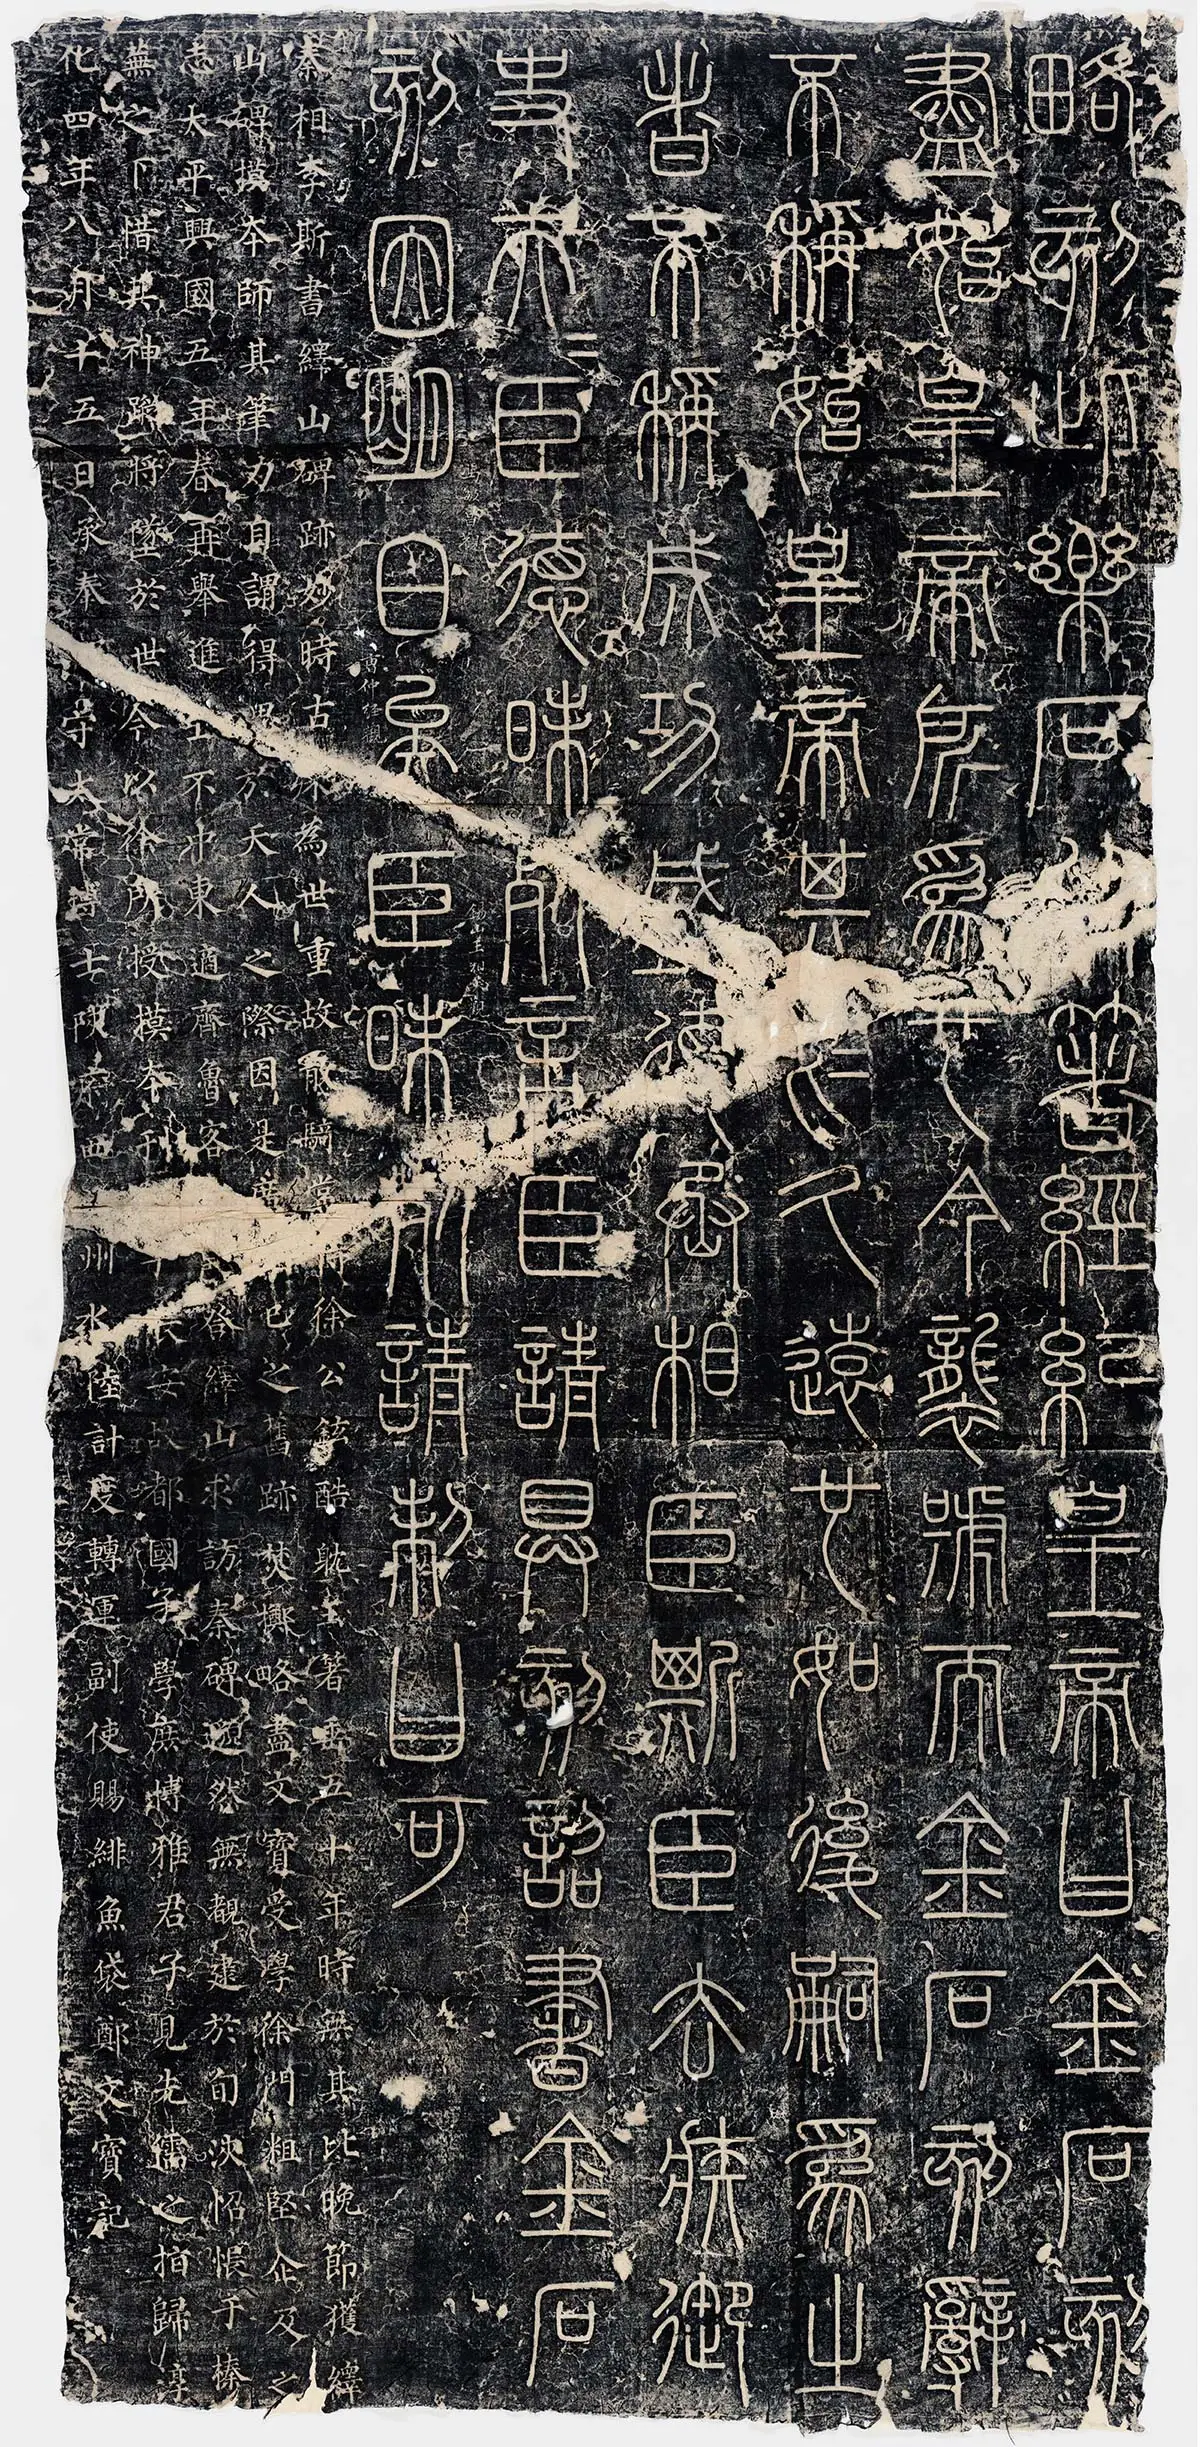 略刻此樂石以著經紀皇帝曰金石刻
盡始皇帝所為也今襲號而金石刻辭
不稱始皇帝其於久遠也如後嗣為之
者不稱成功盛德丞相臣斯臣去疾御
史夫=臣德昧死言臣請具刻詔書金石
刻因明白矣臣昧死請制曰可
秦相李斯書繹山碑跡妙時古殊為世重故散騎常侍徐公鉉酷躭玉箸垂五十年時無其比晚節獲繹
山碑摸本師其筆力自謂得思於天人之際因是廣己之舊跡焚擲略盡文寶受學徐門粗堅企及之
志太平興國五年春再舉進士不中東適齊魯客登繹山求訪秦碑逈然無覩逮於旬浹怊悵于榛
蕪之下惜其神蹤將墜於世今以徐所授摸本刊于長安故都國子學庶博雅君子見先儒之指歸淳
化四年八月十五日承奉郎守太常博士陝府西州水陸計度轉運副使賜緋魚袋鄭文寶記